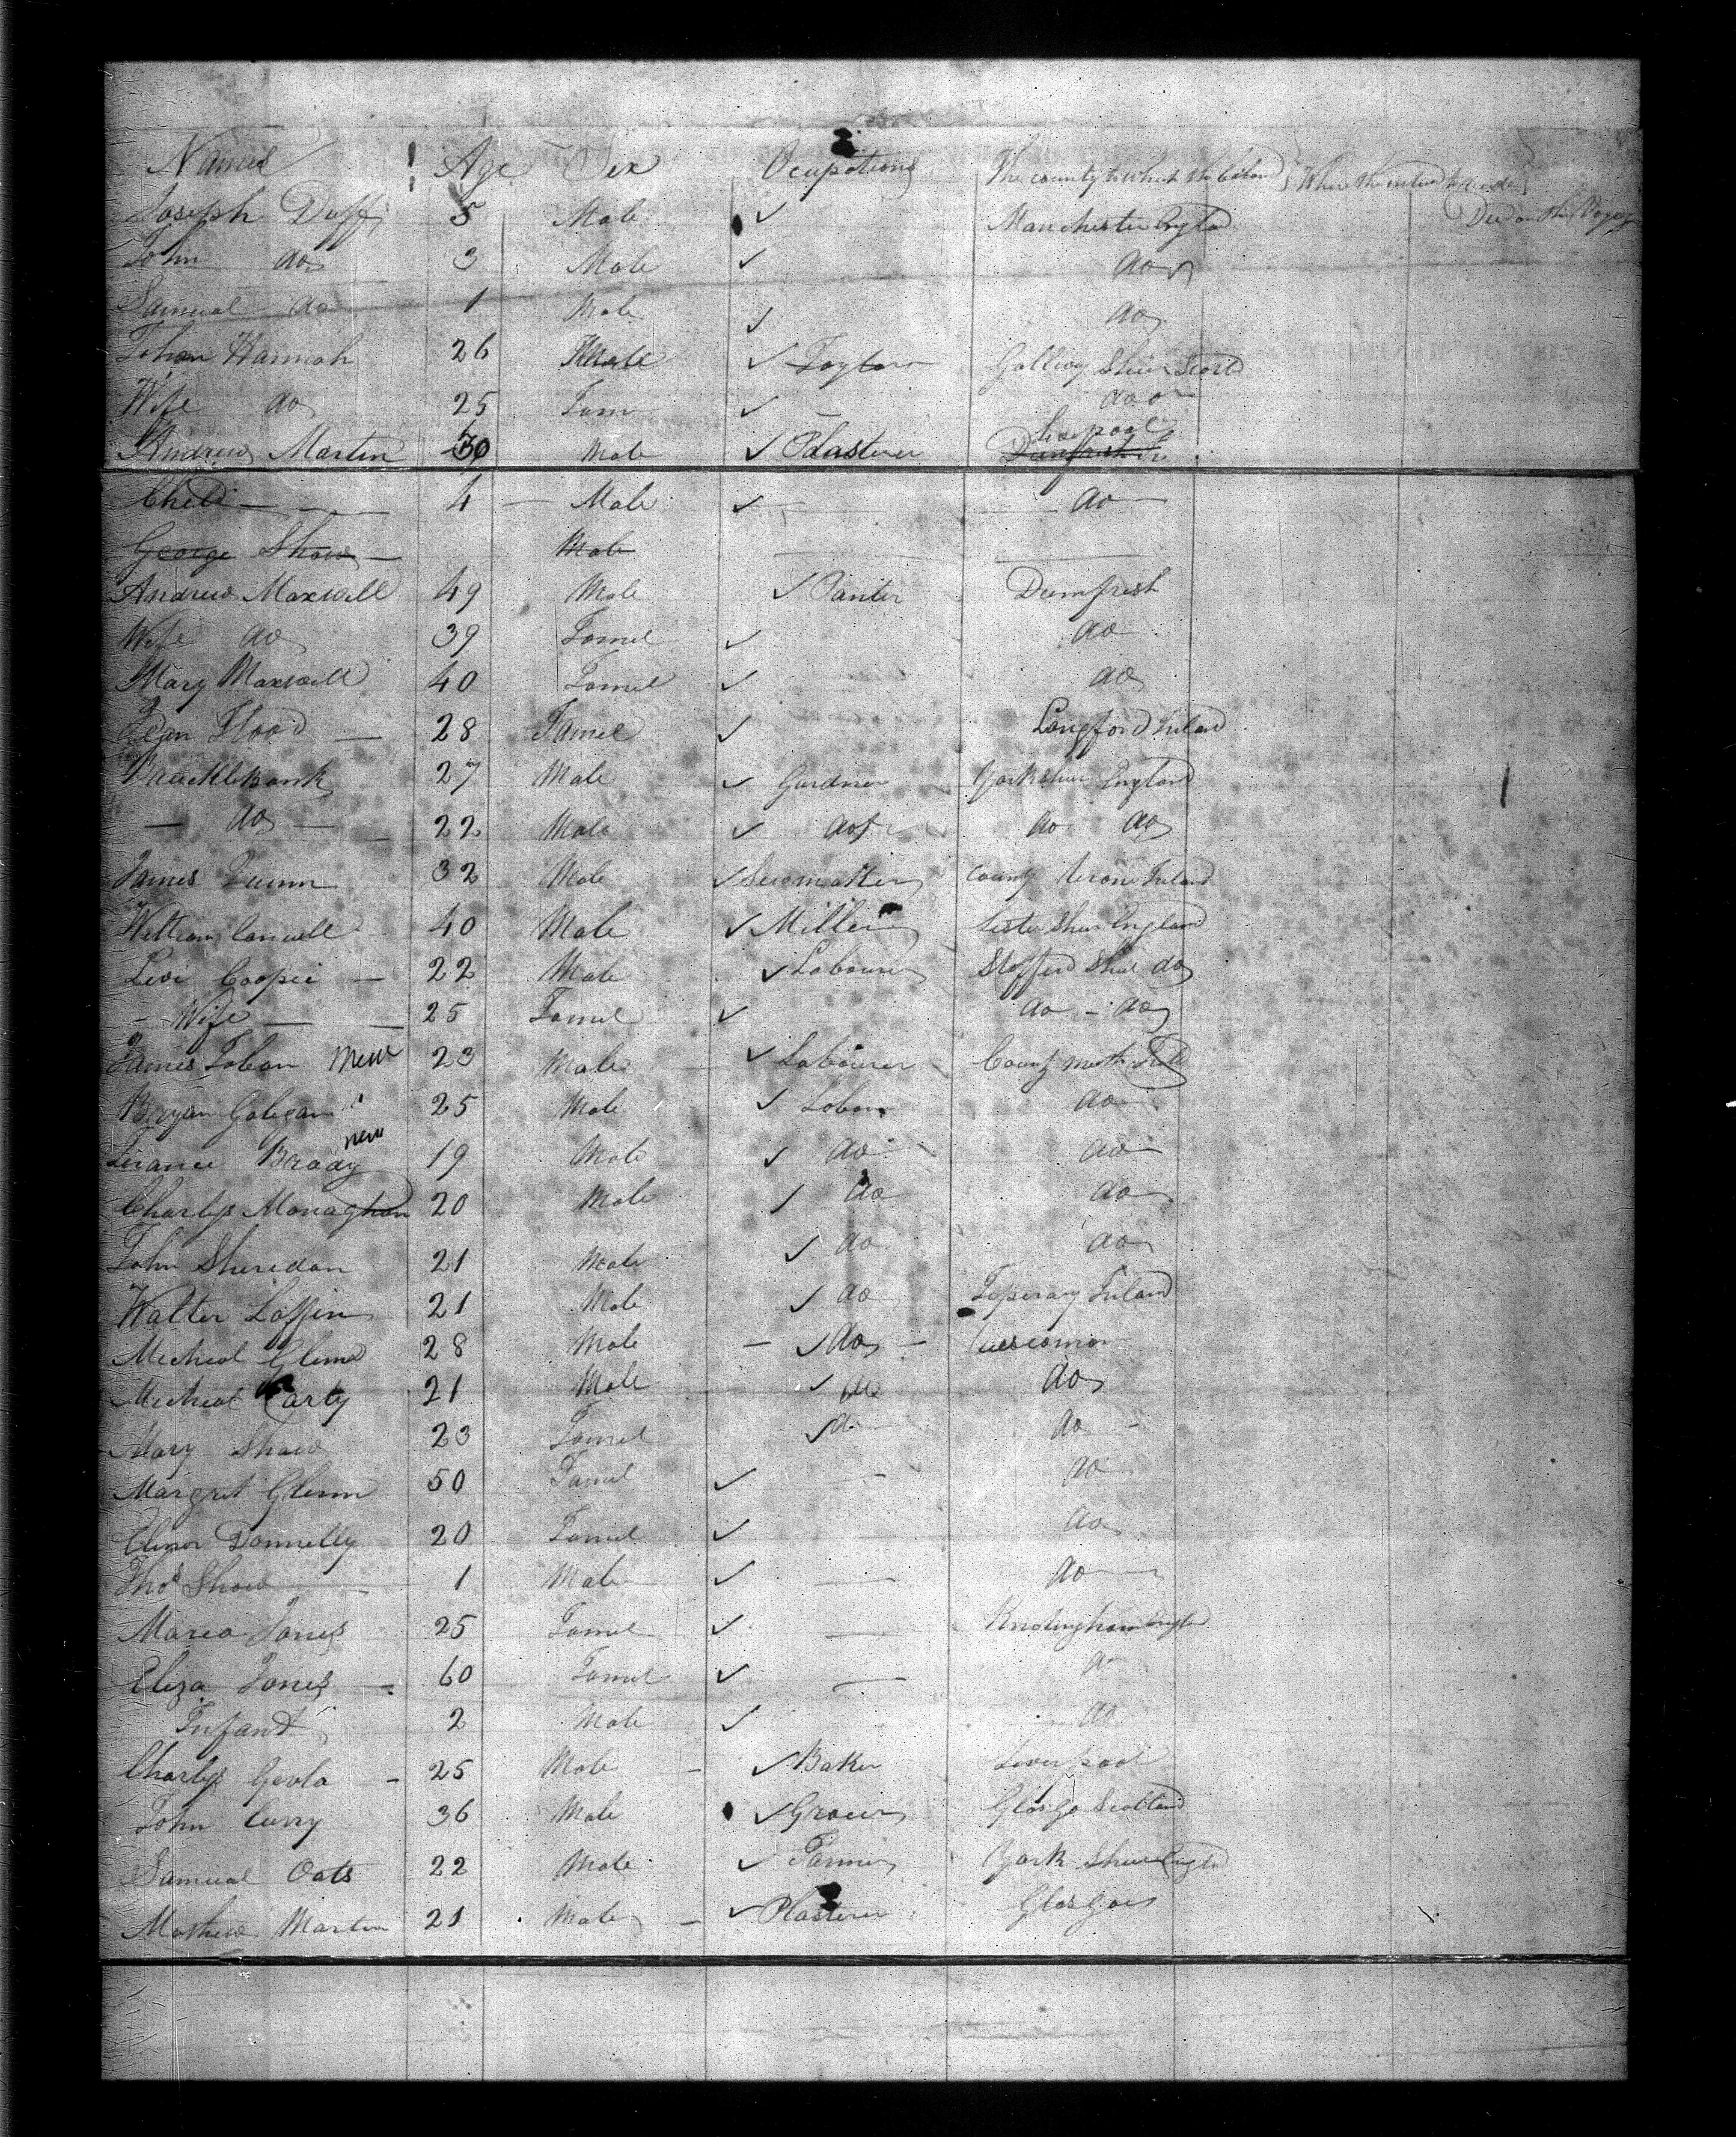 Names Age Sex Ocupations The county to which the belond Where the intend to
Joseph Duffy 5 Male ✓ Manchester Engld Died on the Voyage
John do 3 Male ✓ do
Samual do 1 Male ✓ do
John Hannah 26 Male ✓ Taylor Gallway Shier Scotd
Wife do 25 Fam ✓ do
Andrew Martin 30 Male ✓ Plasterer Liverpool
Child 4 Male ✓ do
George Shaw Male
Andrew Maxwell 49 Male ✓ Panter Dumfresh
Wife do 39 Famel ✓ do
Mary Maxwell 40 Famel ✓ do
Flood 28 Famel ✓ Longford Ireland
27 Male ✓ Gardner Yorkshier England
do 22 Male ✓ do do do
James Quinn 32 Male ✓ county terone Ireland
William 40 Male ✓ Miller Lester Shier England
Levi Cooper 22 Male ✓ Labourer Stafford Shier do
Wife 25 Famel ✓ do - do
James 23 Male ✓ Labourer County Meath
Bryan 25 Male ✓ Labour do
Brady new 19 Male ✓ do do
Charles Monaghan 20 Male ✓ do do
John Sheridan 21 Male ✓ do do
Walter Laffin 21 Male ✓ do Teperary Ireland
Micheal 28 Male ✓ do
Micheal Carty 21 Male ✓ do do
Mary Shaw 23 Famel ✓ do do
Margret Glenn 50 Famel ✓ do
Elinor Donnelly 20 Famel ✓ do
Thos Shaw 1 Male ✓ do
Marea Jones 25 Famel ✓ Knotingham Engld
Eliza Jones 60 Famel ✓ do
Infant 2 Male ✓ do
Charles 25 Male ✓ Baker Liverpool
John Curry 36 Male ✓ Glasgo Scotland
Samual Oats 22 Male ✓ Farmer York Shier Engld
Mathew Martin 21 Male ✓ Plasterer Glasgow